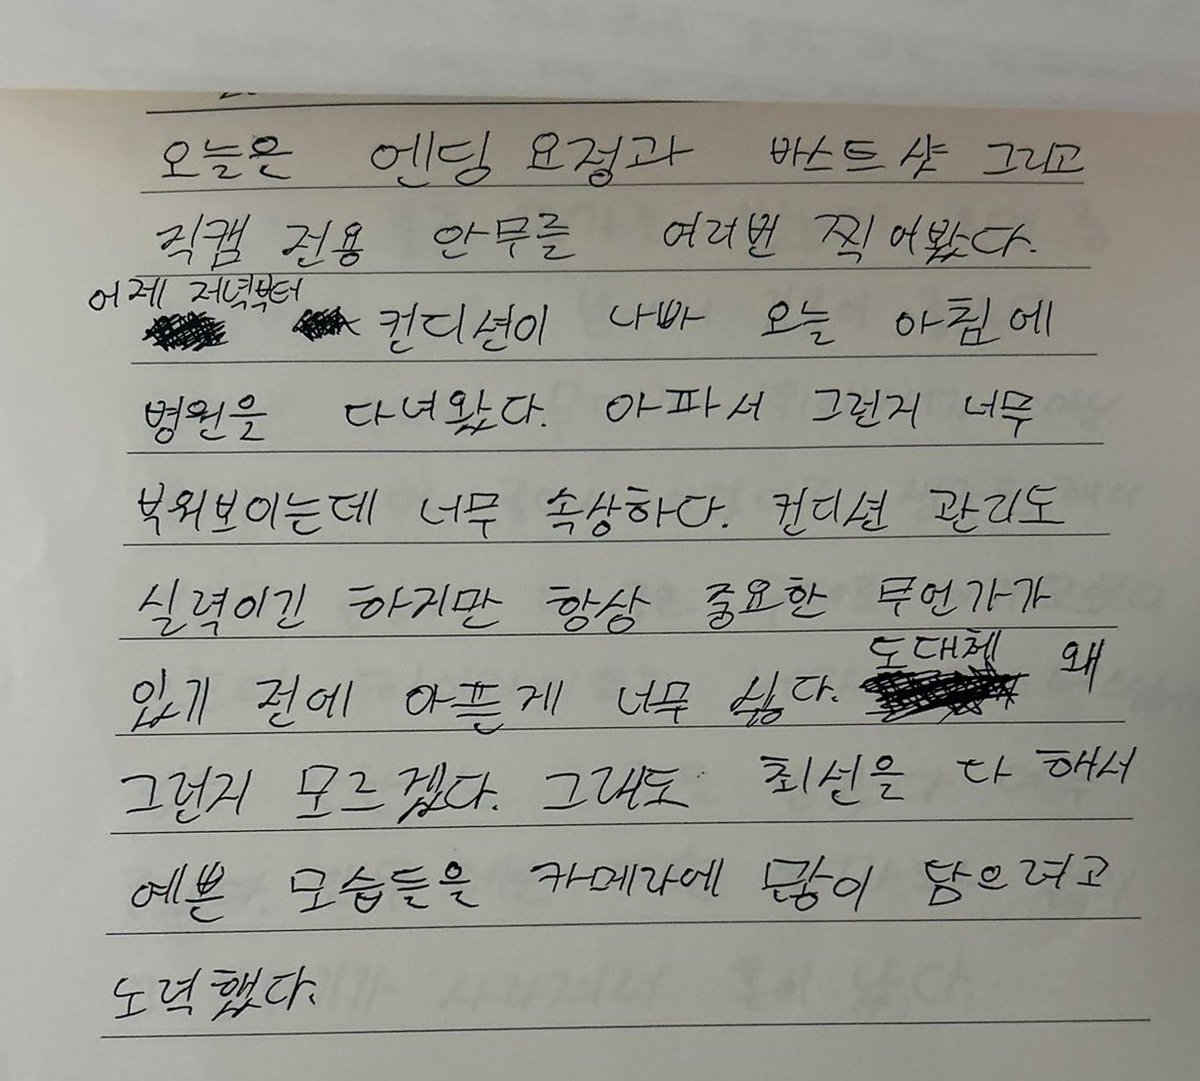 오늘은 엔딩 요정과 바스트 샷 그리고
직캠 전용 안무를 여러번 찍어봤다.
어제 저녁부터
컨디션이 나빠 오늘 아침에
병원을 다녀왔다. 아파서 그런지 너무
부워보이는데 너무 속상하다. 컨디션 관리도
실력이긴 하지만 항상 중요한 무언가가
있기 전에 아픈게 너무 싫다. 도대체 왜
그런지 모르겠다. 그래도 최선을 다 해서
예쁜 모습들을 카메라에 많이 담으려고
노력했다.